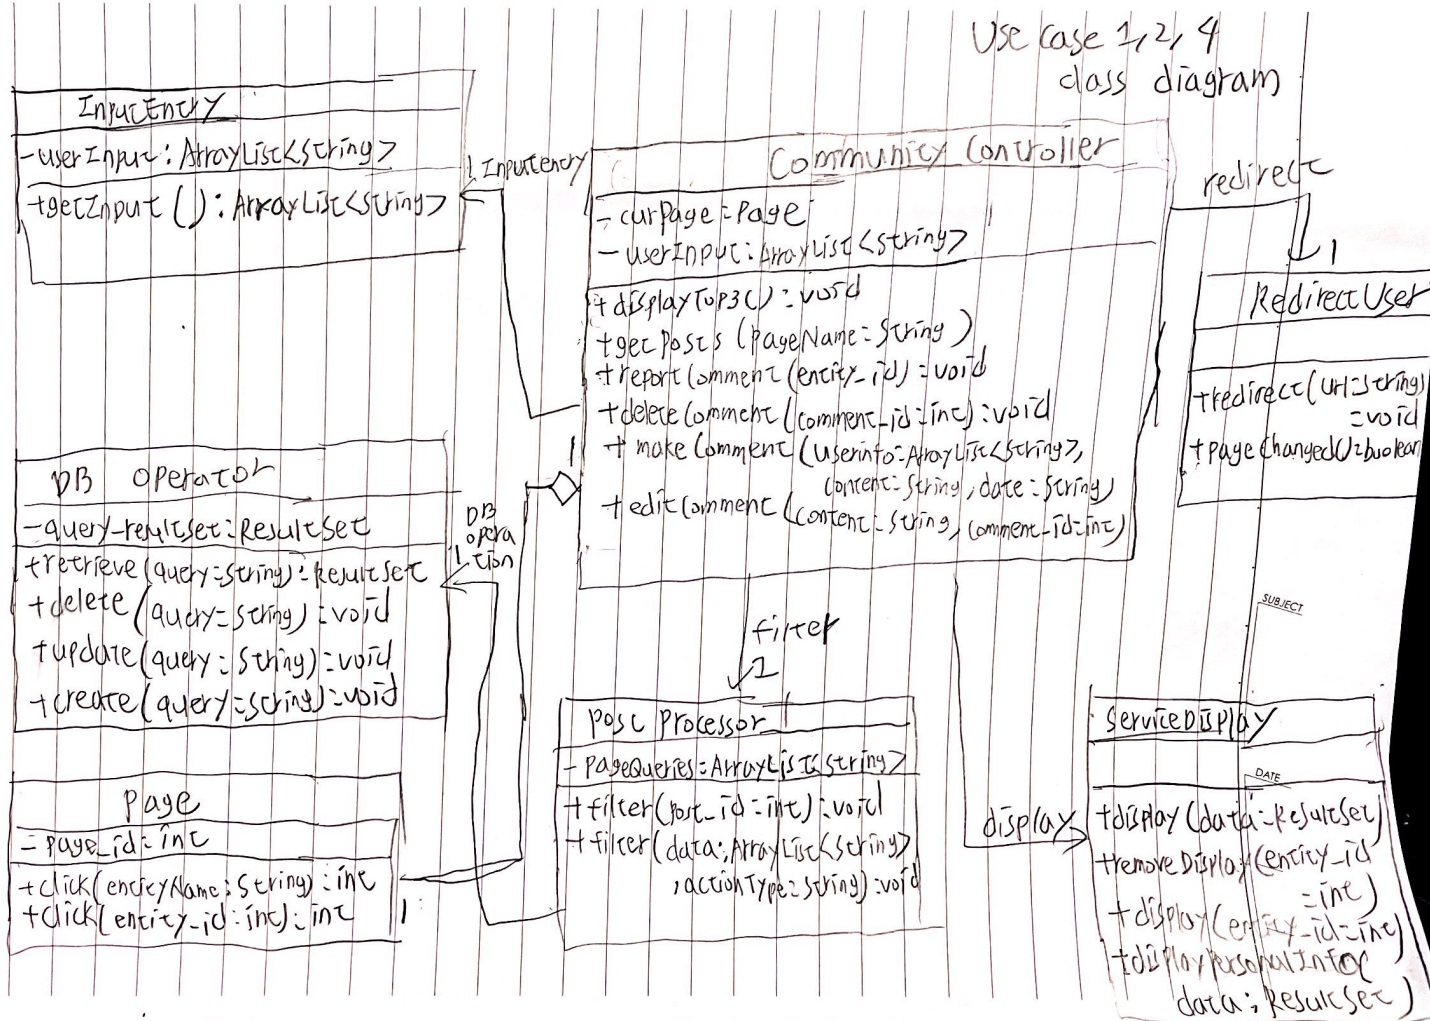 Use case 1, 2, 4
class diagram
InputEntry
-userInput: ArrayList<String>
+getInput(): ArrayList<String>
1 Inputentry
Community Controller
- curPage: Page
- userInput: ArrayList<String>
+displayTop3(): void
+getPosts (pageName: String)
+reportComment (entity_id): void
+deleteComment (comment_id: int): void
+ makeComment (userinfo: ArrayList<String>,
content: String, date: String)
+editComment (content: String, comment_id: int)
1
redirect
1
RedirectUser
+redirect(url: String)
: void
+pageChanged(): boolean
DB Operator
-query-resultset: ResultSet
+retrieve (query: String): ResultSet
+delete (query: String): void
+update (query: String): void
+create (query: String): void
DB
opera
1 tion
filter
1
Post Processor
- PageQueries: ArrayList<String>
+filter(Post_id: int): void
+filter(data: ArrayList<String>
, actionType: String): void
Page
- page_id: int
+click(entityName: String): int
+click(entity_id: int): int
1
display
ServiceDisplay
+display (data: ResultSet)
+removeDisplay (entity_id
: int)
+display (entity_id: int)
+displayPersonalInfo(
data: ResultSet)
SUBJECT
DATE